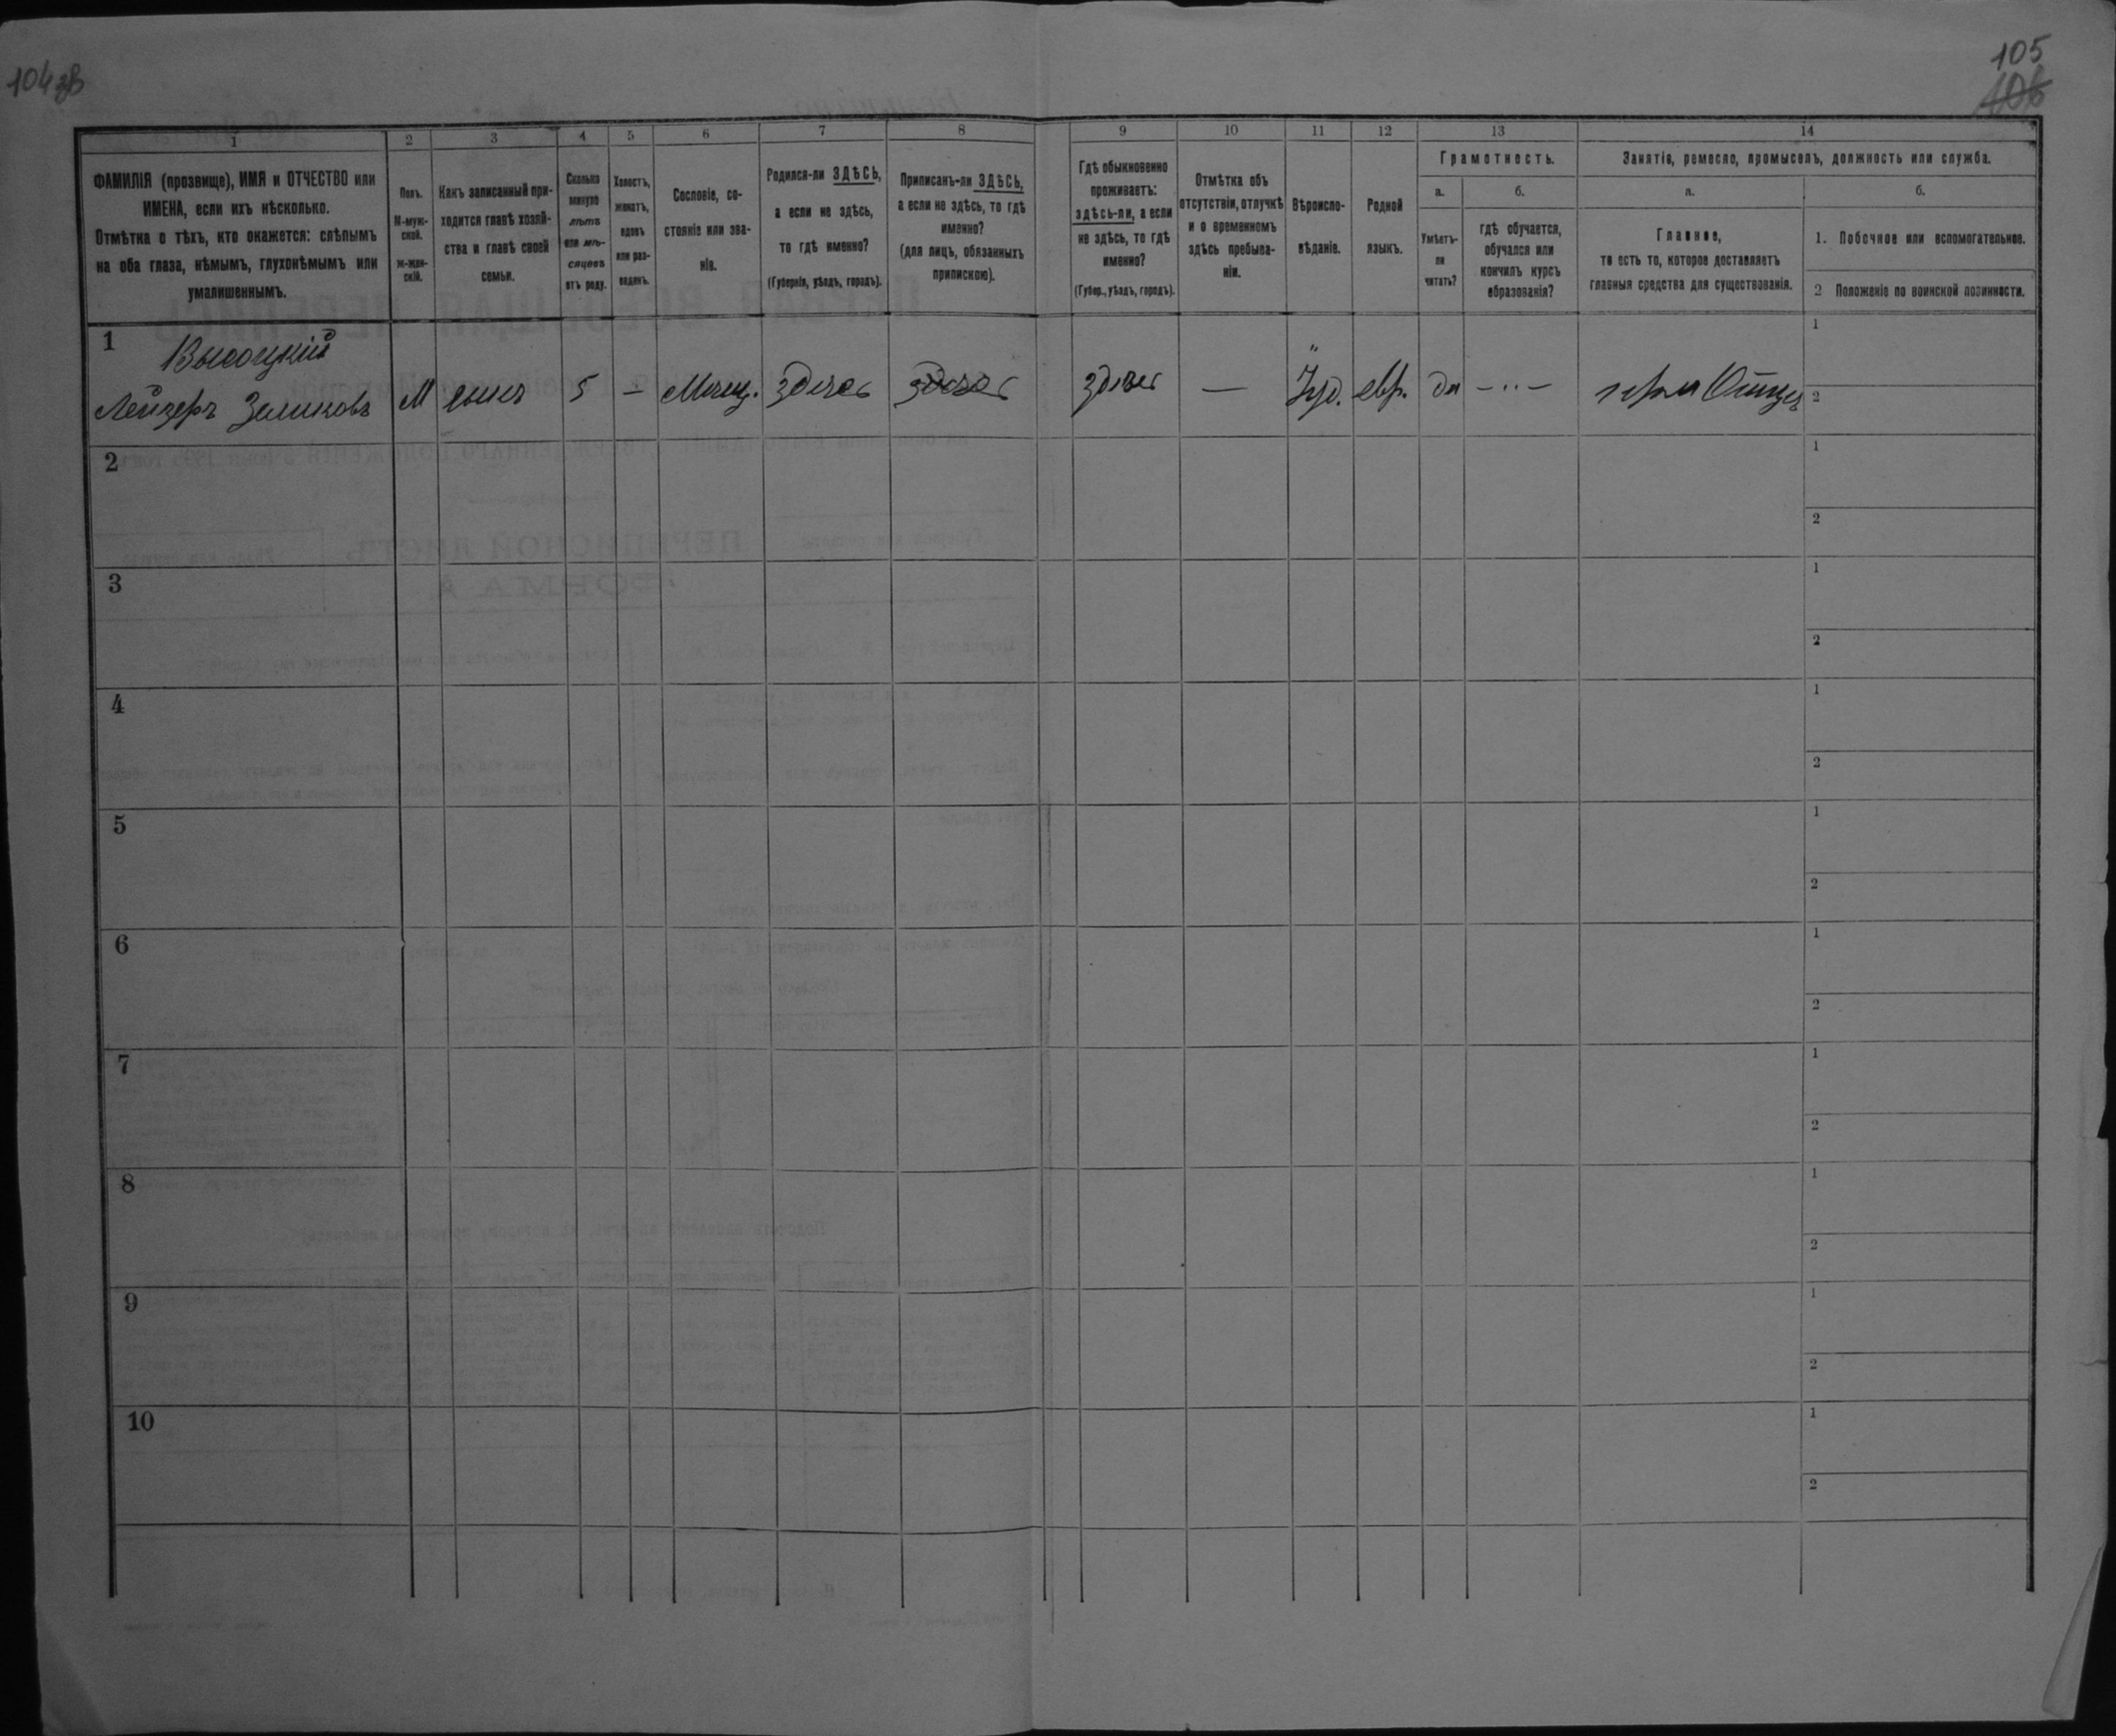 104 зв
105
106
1
2
3
4
5
6
7
8
9
10
11
12
13
14
ФАМИЛІЯ (прозвище), ИМЯ и ОТЧЕСТВО или
ИМЕНА, если ихъ нѣсколько.
Отмѣтка о тѣхъ, кто окажется: слѣпымъ
на оба глаза, нѣмымъ, глухонѣмымъ или
умалишеннымъ.
Полъ.
М-муж-
ской.
Ж-жен-
скій.
Какъ записанный при-
ходится главѣ хозяй-
ства и главѣ своей
семьи.
Сколько
минуло
лѣтъ
или мѣ-
сяцевъ
отъ роду.
Холостъ,
женатъ,
вдовъ
или раз-
веденъ.
Сословіе, со-
стояніе или зва-
ніе.
Родился-ли ЗДѢСЬ,
а если не здѣсь,
то гдѣ именно?
(Губернія, уѣздъ, городъ).
Приписанъ-ли ЗДѢСЬ,
а если не здѣсь, то гдѣ
именно?
(для лицъ, обязанныхъ
припискою).
Гдѣ обыкновенно
проживаетъ:
здѣсь-ли, а если
не здѣсь, то гдѣ
именно?
(Губер., уѣздъ, городъ).
Отмѣтка объ
отсутствіи, отлучкѣ
и о временномъ
здѣсь пребыва-
ніи.
Вѣроиспо-
вѣданіе.
Родной
языкъ.
Грамотность.
а.
Умѣетъ-
ли
читать?
б.
гдѣ обучается,
обучался или
кончилъ курсъ
образованія?
Занятіе, ремесло, промыселъ, должность или служба.
а.
Главное,
то есть то, которое доставляетъ
главныя средства для существованія.
б.
1. Побочное или вспомогательное.
2 Положеніе по воинской повинности.
1
Высоцкій
Лейзеръ Зеликовъ
М
сынъ
5
—
Мѣщ.
здѣсь
здѣсь
здѣсь
—
Іуд.
евр.
да
-..-
при Отцѣ
1
2
2
1
2
3
1
2
4
1
2
5
1
2
6
1
2
7
1
2
8
1
2
9
1
2
10
1
2